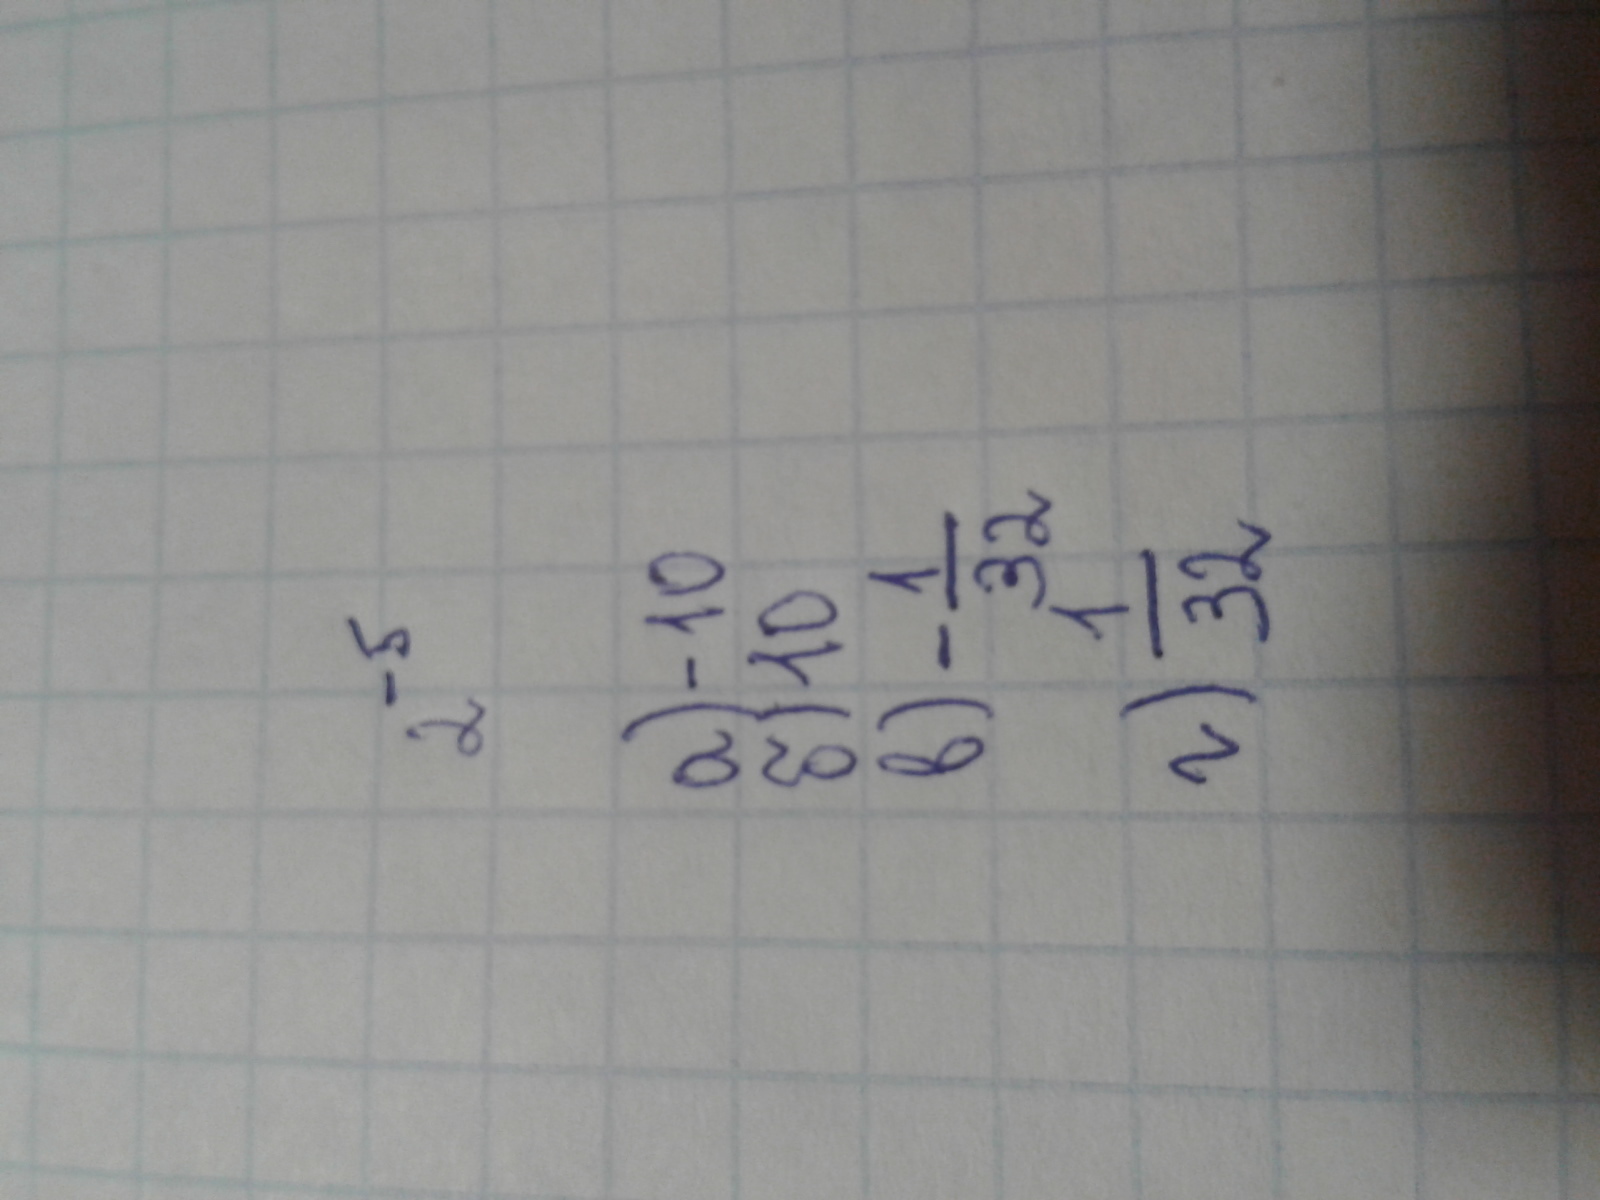 2⁻⁵
а) -10
б) 10
в) -1/32
г) 1/32